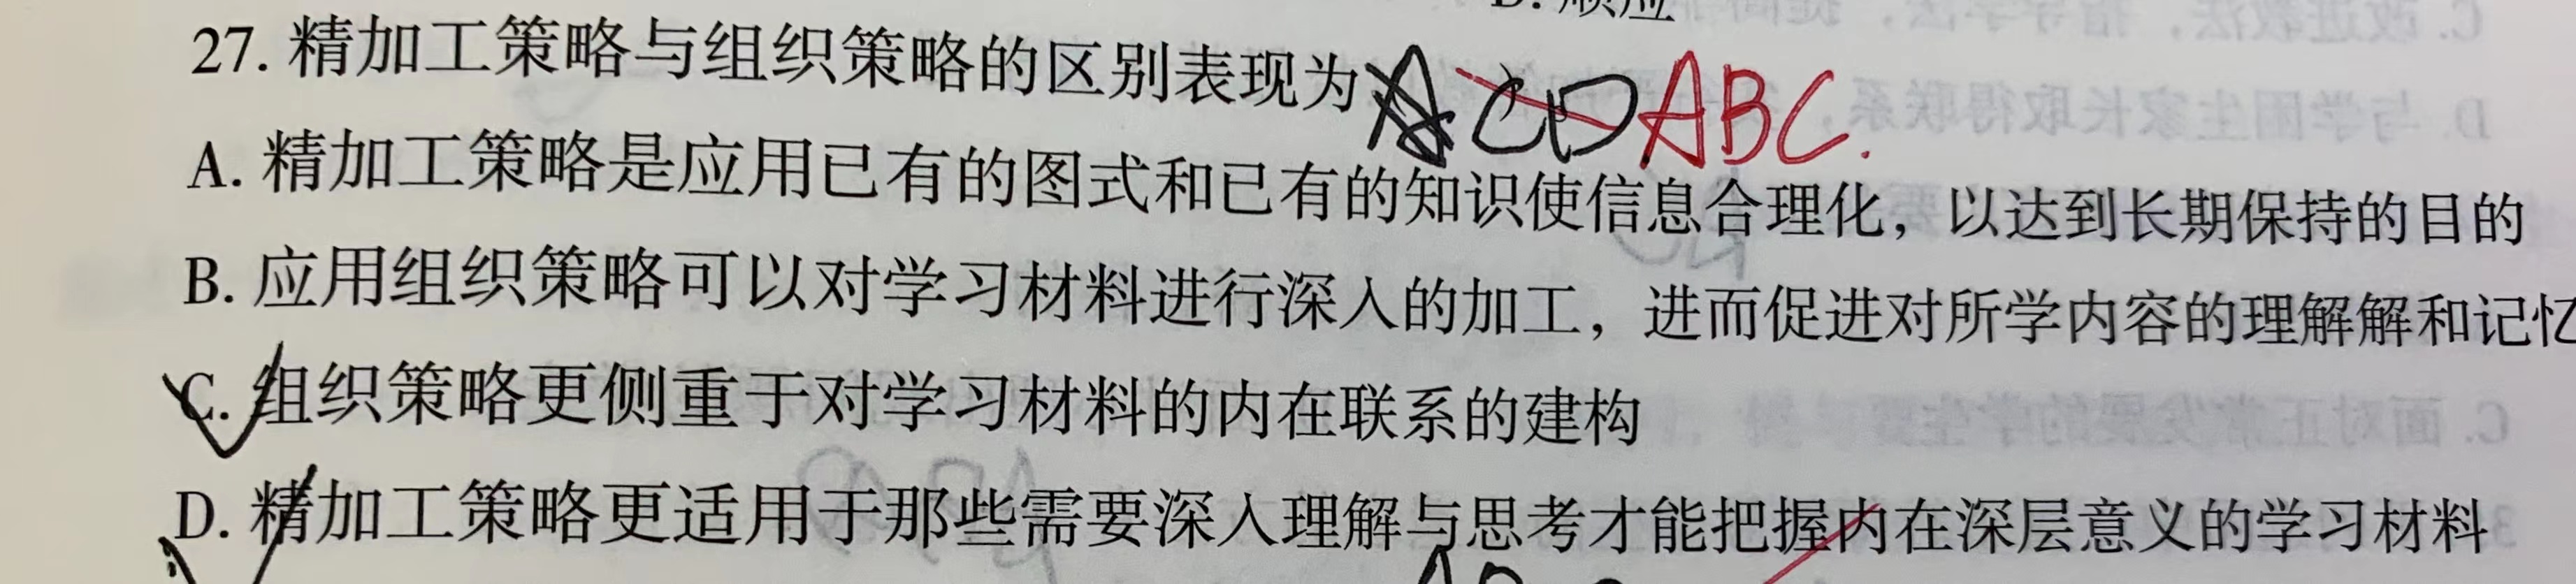 27. 精加工策略与组织策略的区别表现为 A CD ABC.
A. 精加工策略是应用已有的图式和已有的知识使信息合理化，以达到长期保持的目的
B. 应用组织策略可以对学习材料进行深入的加工，进而促进对所学内容的理解解和记忆
C. 组织策略更侧重于对学习材料的内在联系的建构
D. 精加工策略更适用于那些需要深入理解与思考才能把握内在深层意义的学习材料